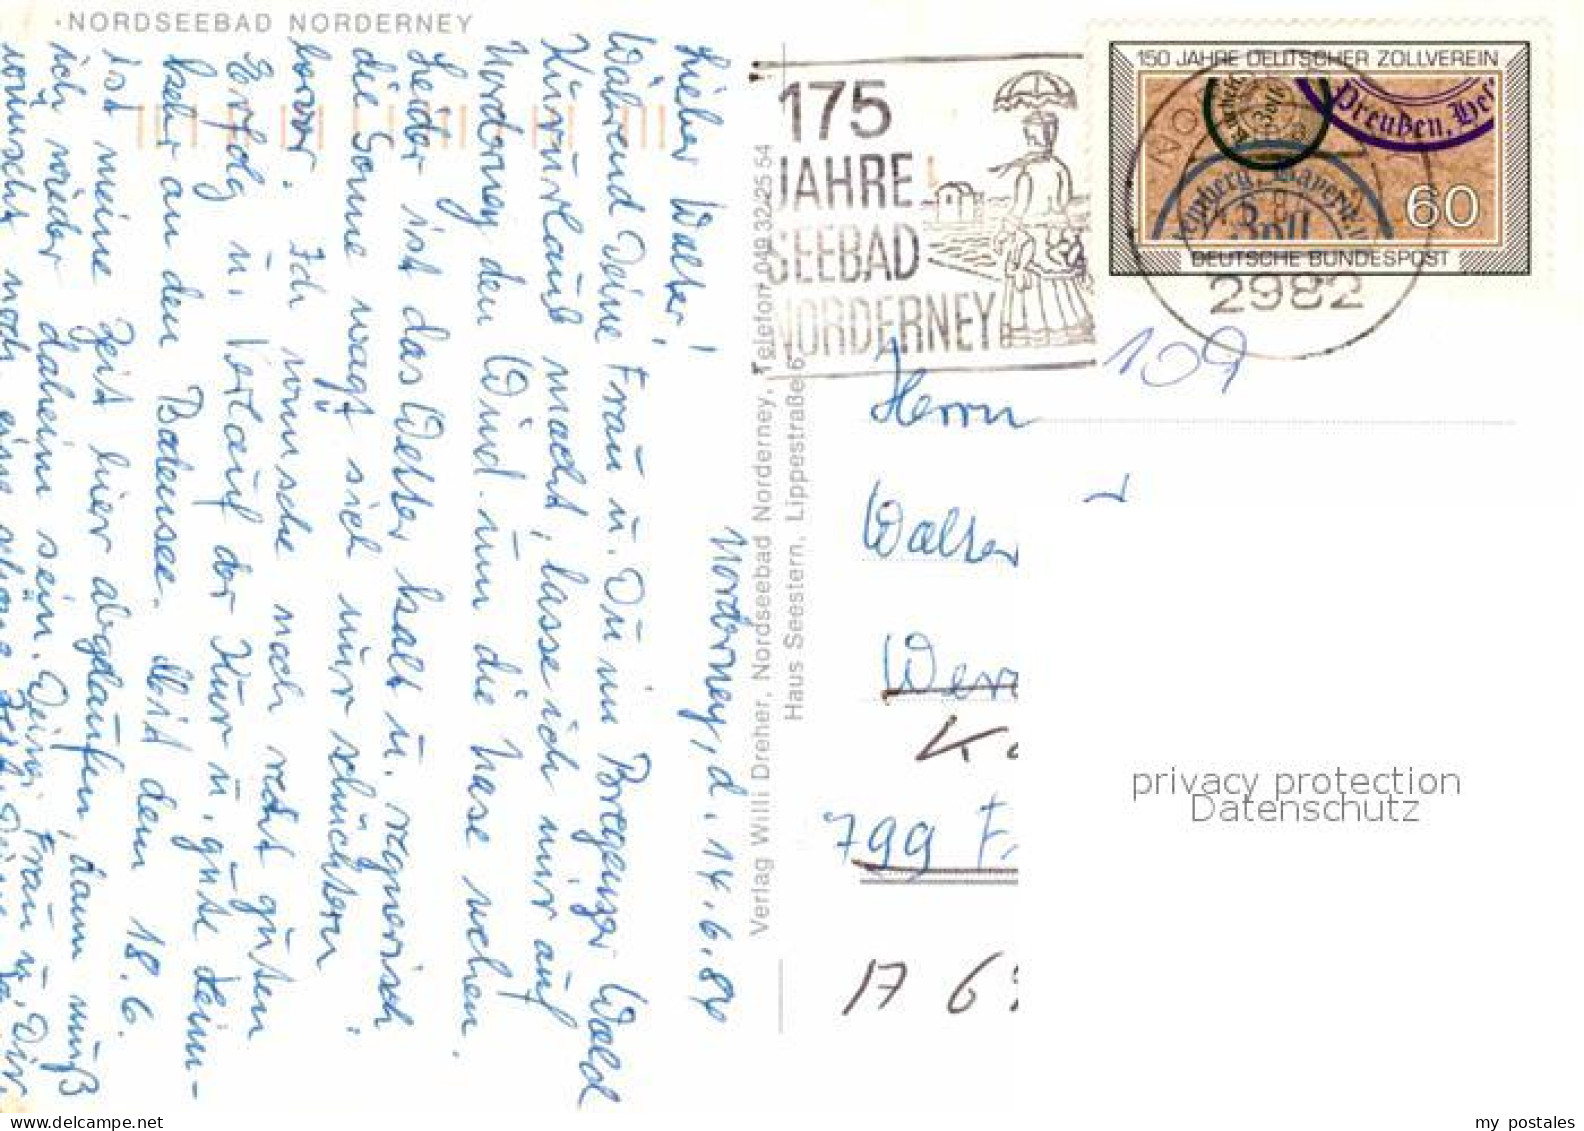 ·NORDSEEBAD NORDERNEY
Norderney, d. 14.6.84
Lieber Walter!
Während Deine Frau u. Du im Bregenzer Wald
Kurzurlaub macht, lasse ich mir auf
Norderney den Wind um die Nase wehen.
Leider ist das Wetter kalt u. regnerisch
die Sonne wagt sich nur schüchtern
hervor. Ich wünsche noch recht guten
Erfolg u. Verlauf der Kur u. gute Heim-
kehr an den Bodensee. Mit dem 18.6.
ist meine Zeit hier abgelaufen, dann muß
ich wieder daheim sein. Deiner Frau u. Dir
wünscht noch eine schöne Zeit
Verlag Willi Dreher, Nordseebad Norderney, Telefon 049 32/25 54
Haus Seestern, Lippestraße 6
175
JAHRE
SEEBAD
NORDERNEY
150 JAHRE DEUTSCHER ZOLLVEREIN
Preußen, Hes
Bayern
Zoll
60
DEUTSCHE BUNDESPOST
2982
109
Herrn
Walter
Wer
K
799 F
17 6
privacy protection
Datenschutz
my postales